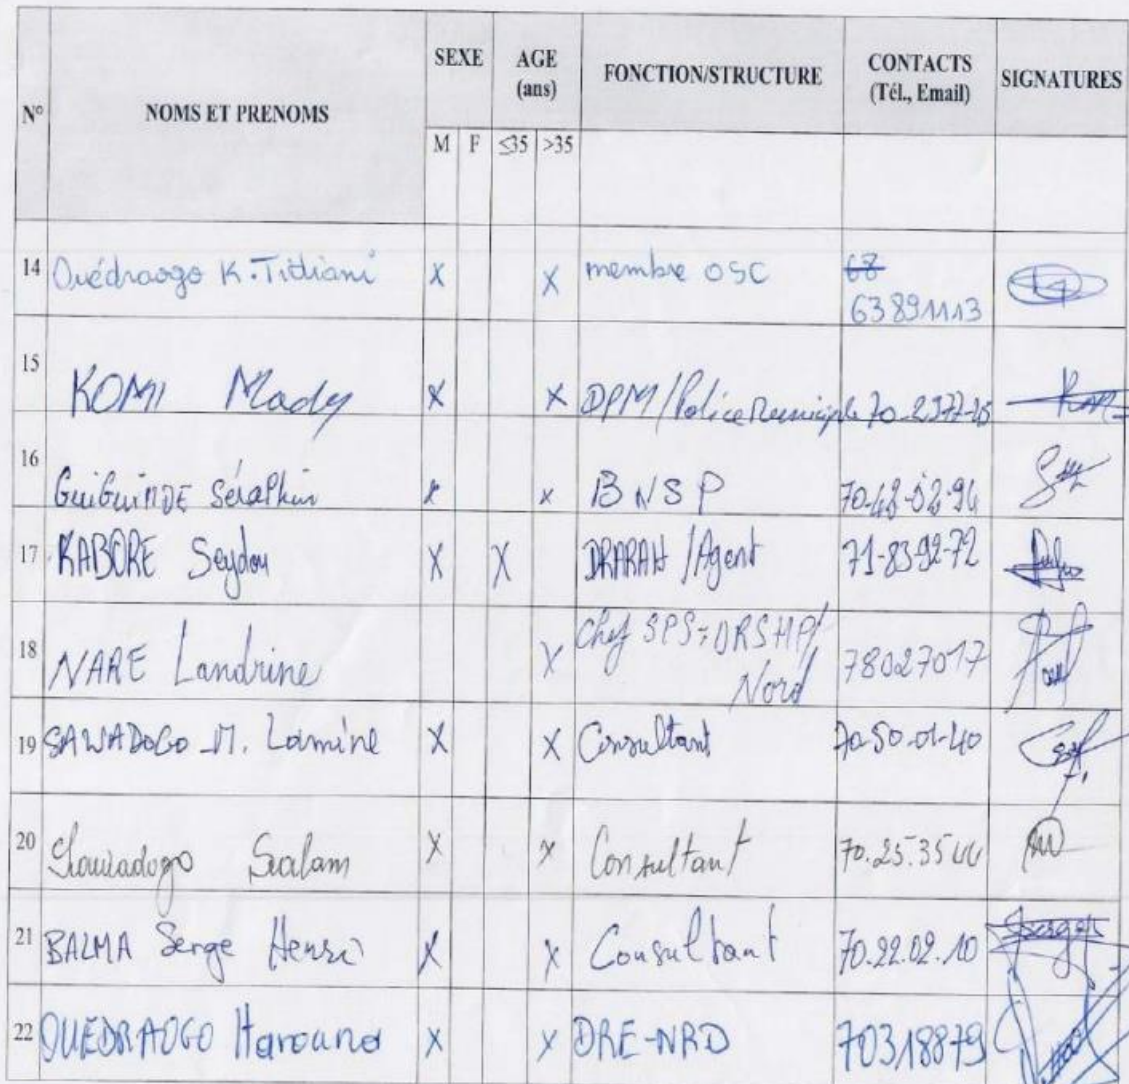 N° NOMS ET PRENOMS SEXE AGE (ans) FONCTION/STRUCTURE CONTACTS (Tél., Email) SIGNATURES
M F ≤35 >35
14 Ouédraogo K. Tidiani X X membre OSC 68 63891113
15 KOMI Mady X X DPM/Police Municiple 70-2377-25
16 GuiGuiMDE Séraphin x x BNSP 70-48-02-94
17 KABORE Seydou X X DRARAH/Agent 71-83-92-72
18 NARE Landrine X Chef SPS/DRSHP/Nord 78027017
19 SAWADOGO M. Lamine X X Consultant 70-50-01-40
20 Sawadogo Salam X X Consultant 70.25.35 44
21 BALMA Serge Henri X X Consultant 70.22.02.10
22 OUEDRAOGO Harouna X X DRE-NRD 70318879